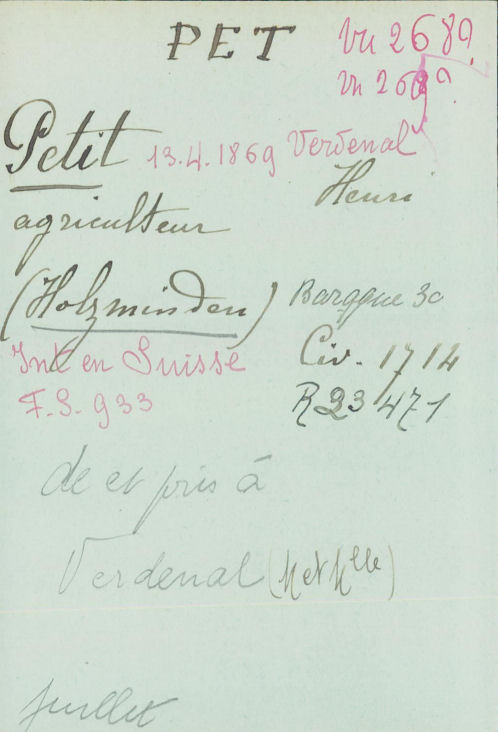 PET
Vu 2689
Vu 2689
Petit 13.4.1869 Verdenal
Henri
agriculteur
(Holzminden) Baraque 30
Int en Suisse Civ. 1714
F.S. 933 R 23471
de et pris à
Verdenal (M et Mlle)
juillet